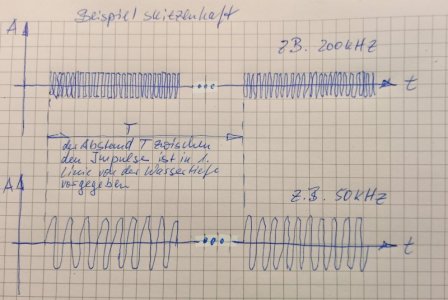 Beispiel skizzenhaft
A
z.B. 200kHz
t
T
der Abstand T zwischen
den Impulse ist in 1.
Linie von der Wassertiefe
vorgegeben
A
z.B. 50kHz
t